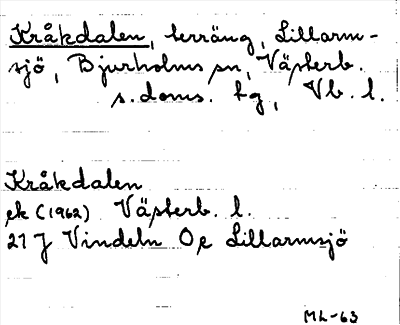 Kråkdalen, terräng, Lillarm-
sjö, Bjurholms sn, Västerb.
s. doms. tg, Vb. l.
Kråkdalen
ek (1962) Västerb. l.
21 J Vindeln 0e Lillarmsjö
ML-63